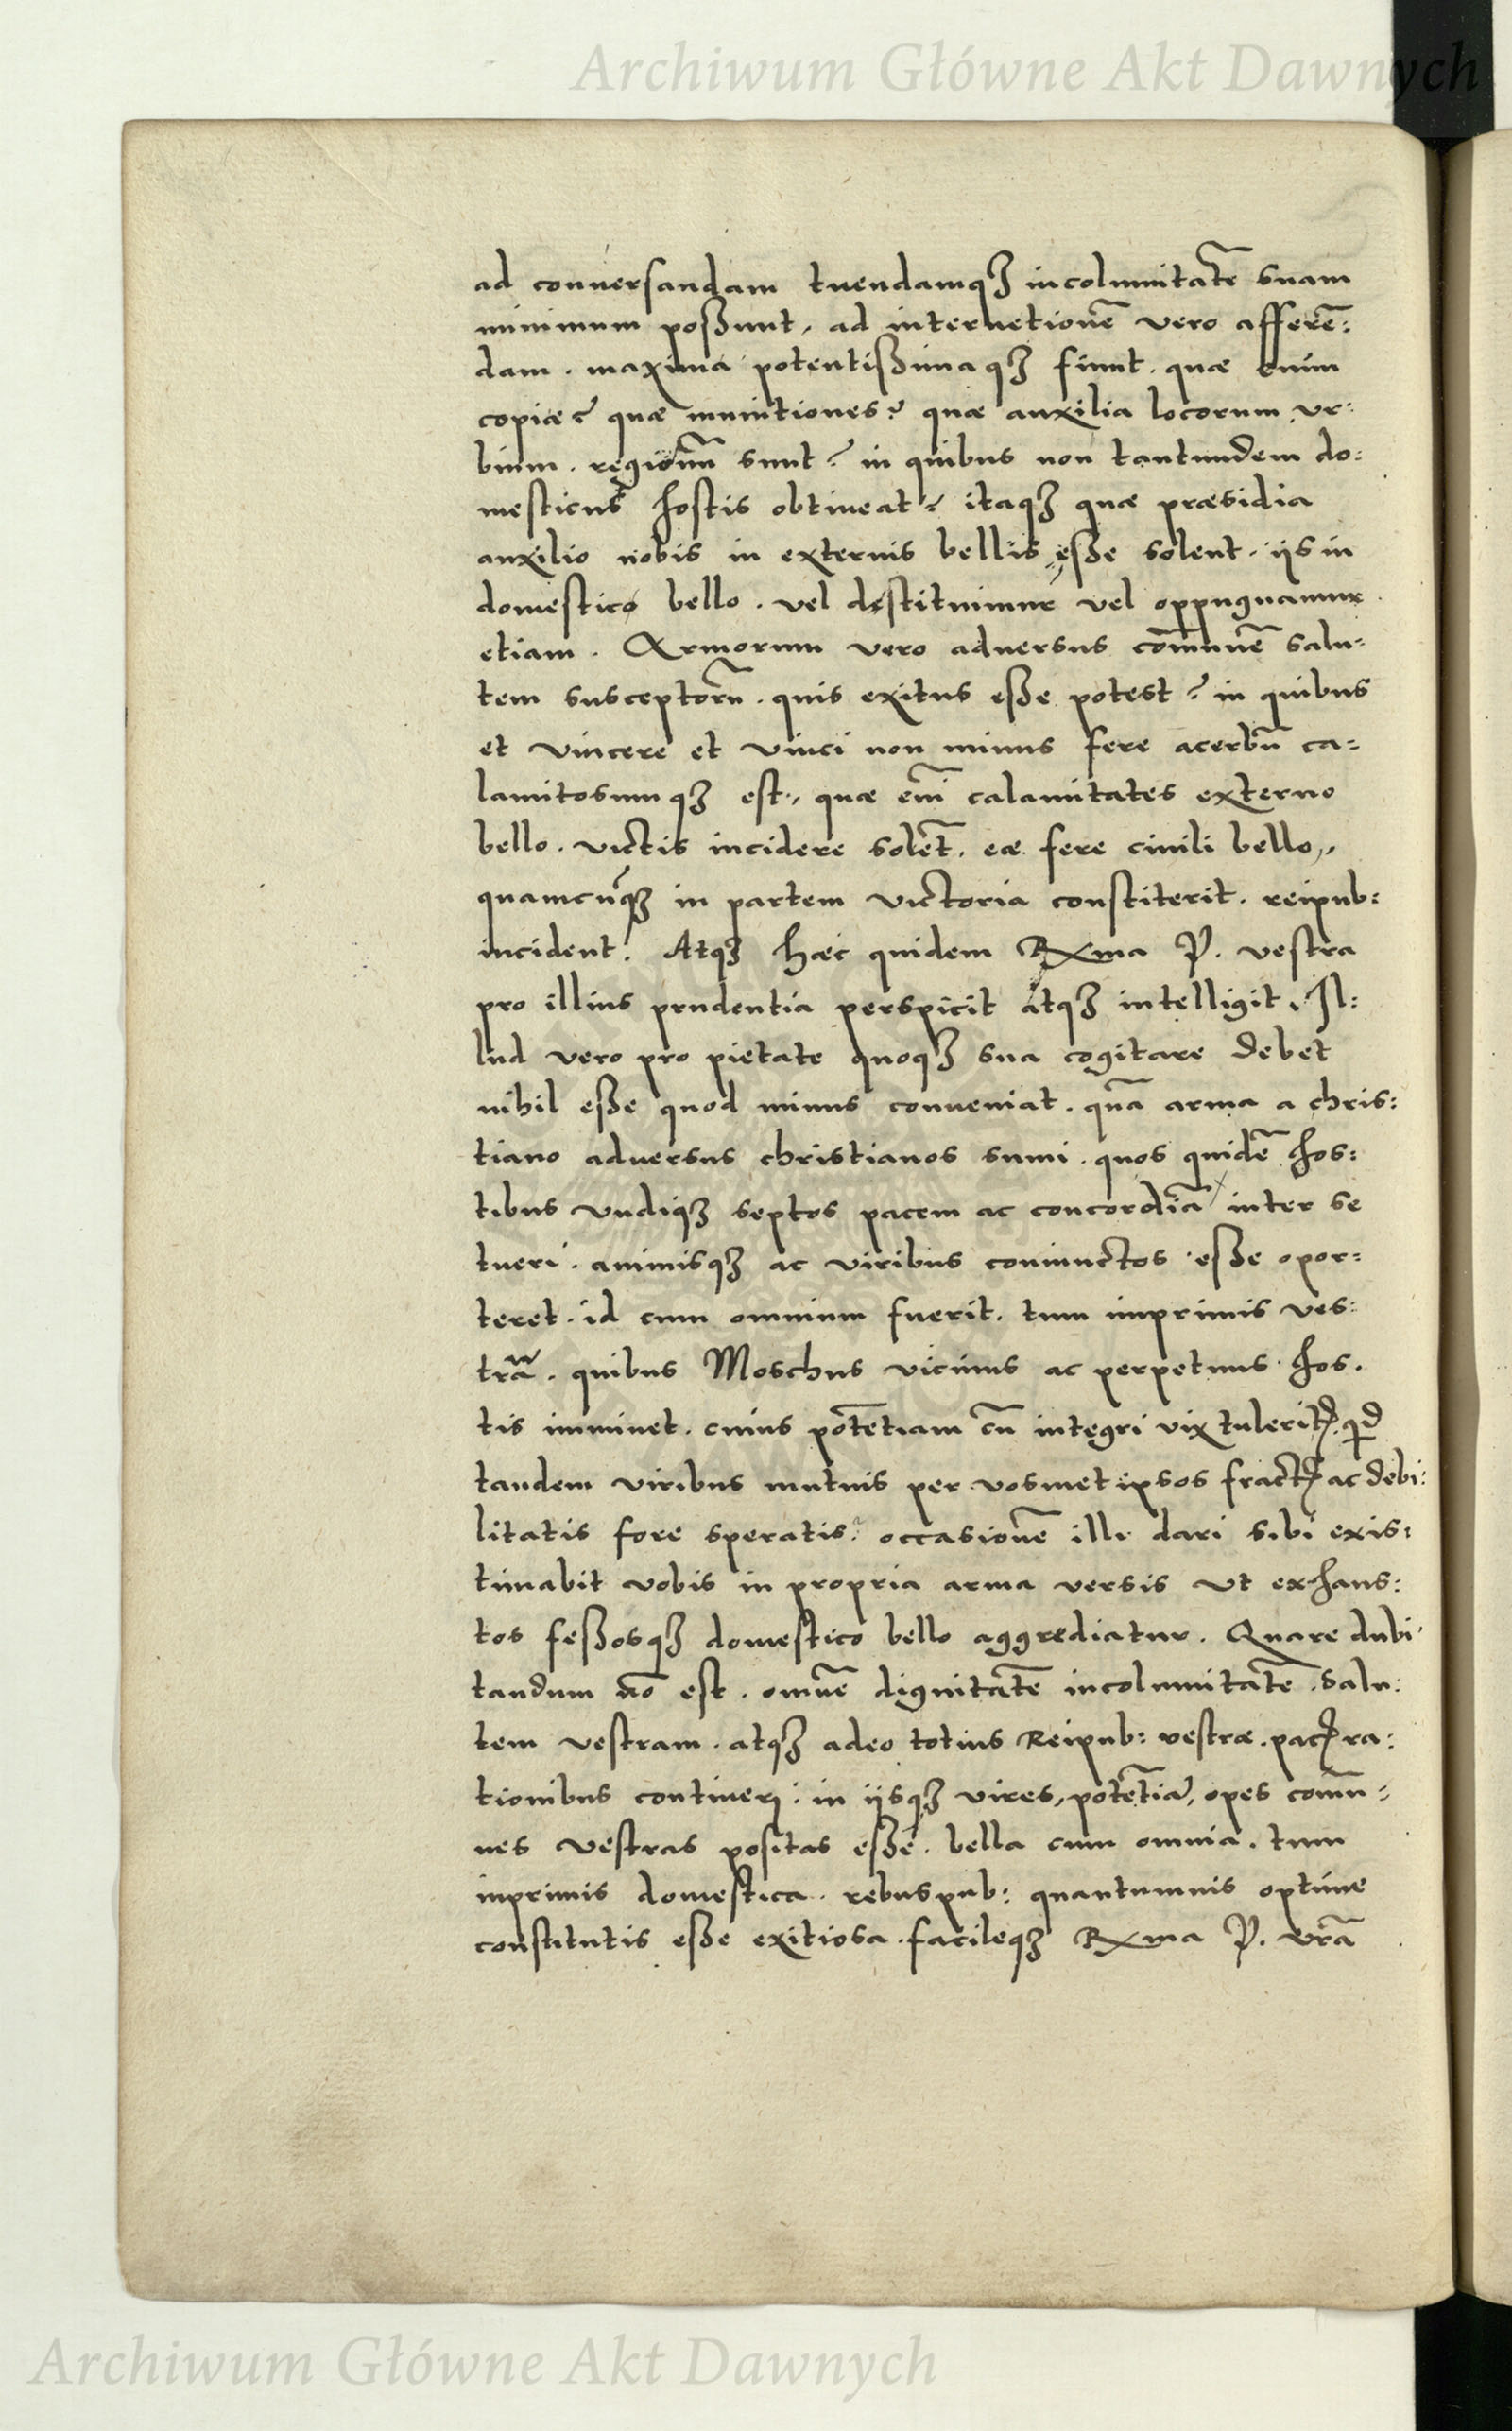 Archiwum Główne Akt Dawnych
ad conuersandam tuendamqȝ incolumitatē suam
minimum possunt, ad internetionē vero afferē:
dam. maxima potentissimaqȝ fiunt. quæ enim
copiæ? quæ munitiones? quæ auxilia locorum vr:
bium. regionū sunt? in quibus non tantundem do:
mesticus hostis obtineat? itaqȝ quæ præsidia
auxilio nobis in externis bellis esse solent. iis in
domestico bello. vel destituimur vel oppugnamur
etiam. Armorum vero aduersus cōmunē salu:
tem susceptorū. quis exitus esse potest? in quibus
et vincere et vinci non minus fere acerbū ca:
lamitosumqȝ est, quæ em̄ calamitates externo
bello. victis incidere solēt. eæ fere ciuili bello,
quamcūqȝ in partem victoria constiterit. reipub:
incident. Atqȝ hæc quidem Rxma P. vestra
pro illius prudentia perspicit atqȝ intelligit. Il:
lud vero pro pietate quoqȝ sua cogitare debet
nihil esse quod minus conueniat. quā arma a chris:
tiano aduersus christianos sumi. quos quidē hos:
tibus vndiqȝ septos pacem ac concordiā inter se
tueri. animisqȝ ac viribus coniunctos esse opor:
teret. id cum omnium fuerit. tum imprimis ves:
trā. quibus Moschus vicinus ac perpetuus hos.
tis imminet. cuius potētiam cū integri vix tuleritꝭ. qd
tandem viribus mutuis per vosmet ipsos fractꝭ ac debi:
litatis fore speratis? occasionē illi dari sibi exis:
timabit vobis in propria arma versis vt exhaus:
tos fessosqȝ domestico bello aggrediatur. Quare dubi
tandum nō est. omnē dignitatē incolumitatē. salu:
tem vestram. atqȝ adeo totius Reipub: vestræ. pacꝭ ra:
tionibus contineri: in iisqȝ vires, potētiā, opes comū:
nes vestras positas esse. bella cum omnia. tum
inprimis domestica. rebuspub: quantumuis optime
constitutis esse exitiosa. facileqȝ Rxma P. vrā
Archiwum Główne Akt Dawnych